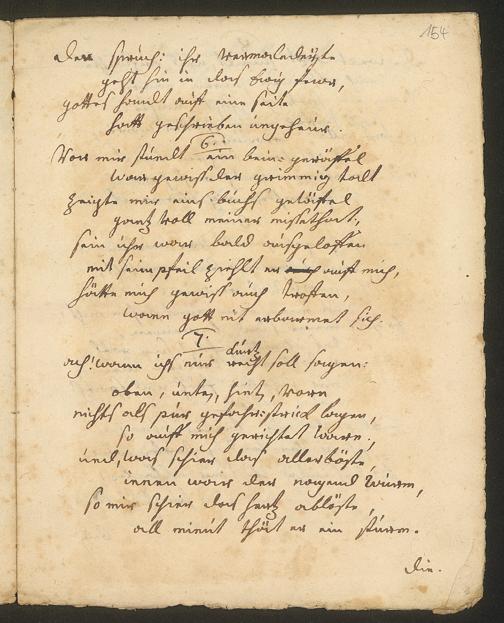 154
den spruch: ihr vermaledeyte
geht hin in das Ewig feur,
gottes handt auff eine seite
hatt geschrieben ungeheur.
6.
Vor mir stundt ein bein-gerüssel
war gewiss der grimmig todt
zeigte mir eins buchs
gantz voll meiner missethat,
sein uhr war bald ausgeloffen
mit seim pfeil ziehlt er auff mich,
hätte mich gewiss auch troffen,
wann gott nit erbarmet sich.
7.
ach! wann ichs nur recht soll sagen:
oben, unten, hint, vorn
nichts als pur gefahr-strick lagen,
so auff mich gerichtet warn,
und, was schier das allerböste,
innen war der nagend wurm,
so mir schier das hertz ablöste,
all minut thät er ein sturm.
die.